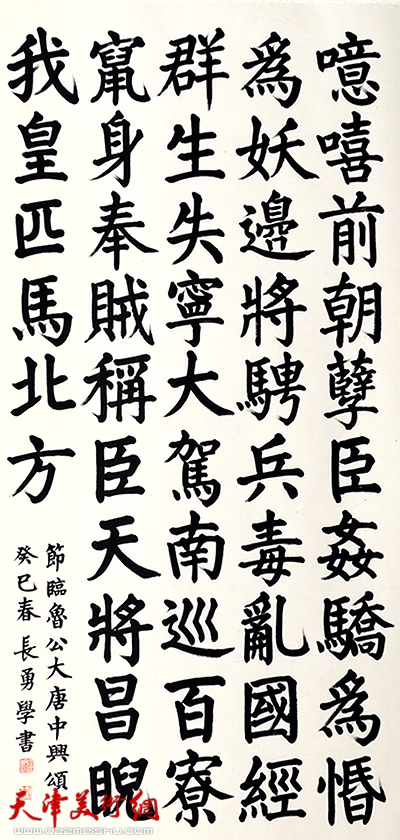 噫嘻前朝孽臣姦驕為惛
為妖邊將騁兵毒亂國經
群生失寧大駕南巡百寮
竄身奉賊稱臣天將昌睨
我皇匹馬北方
節臨魯公大唐中興頌
癸巳春長勇學書
天津美術網
www.022meishu.com